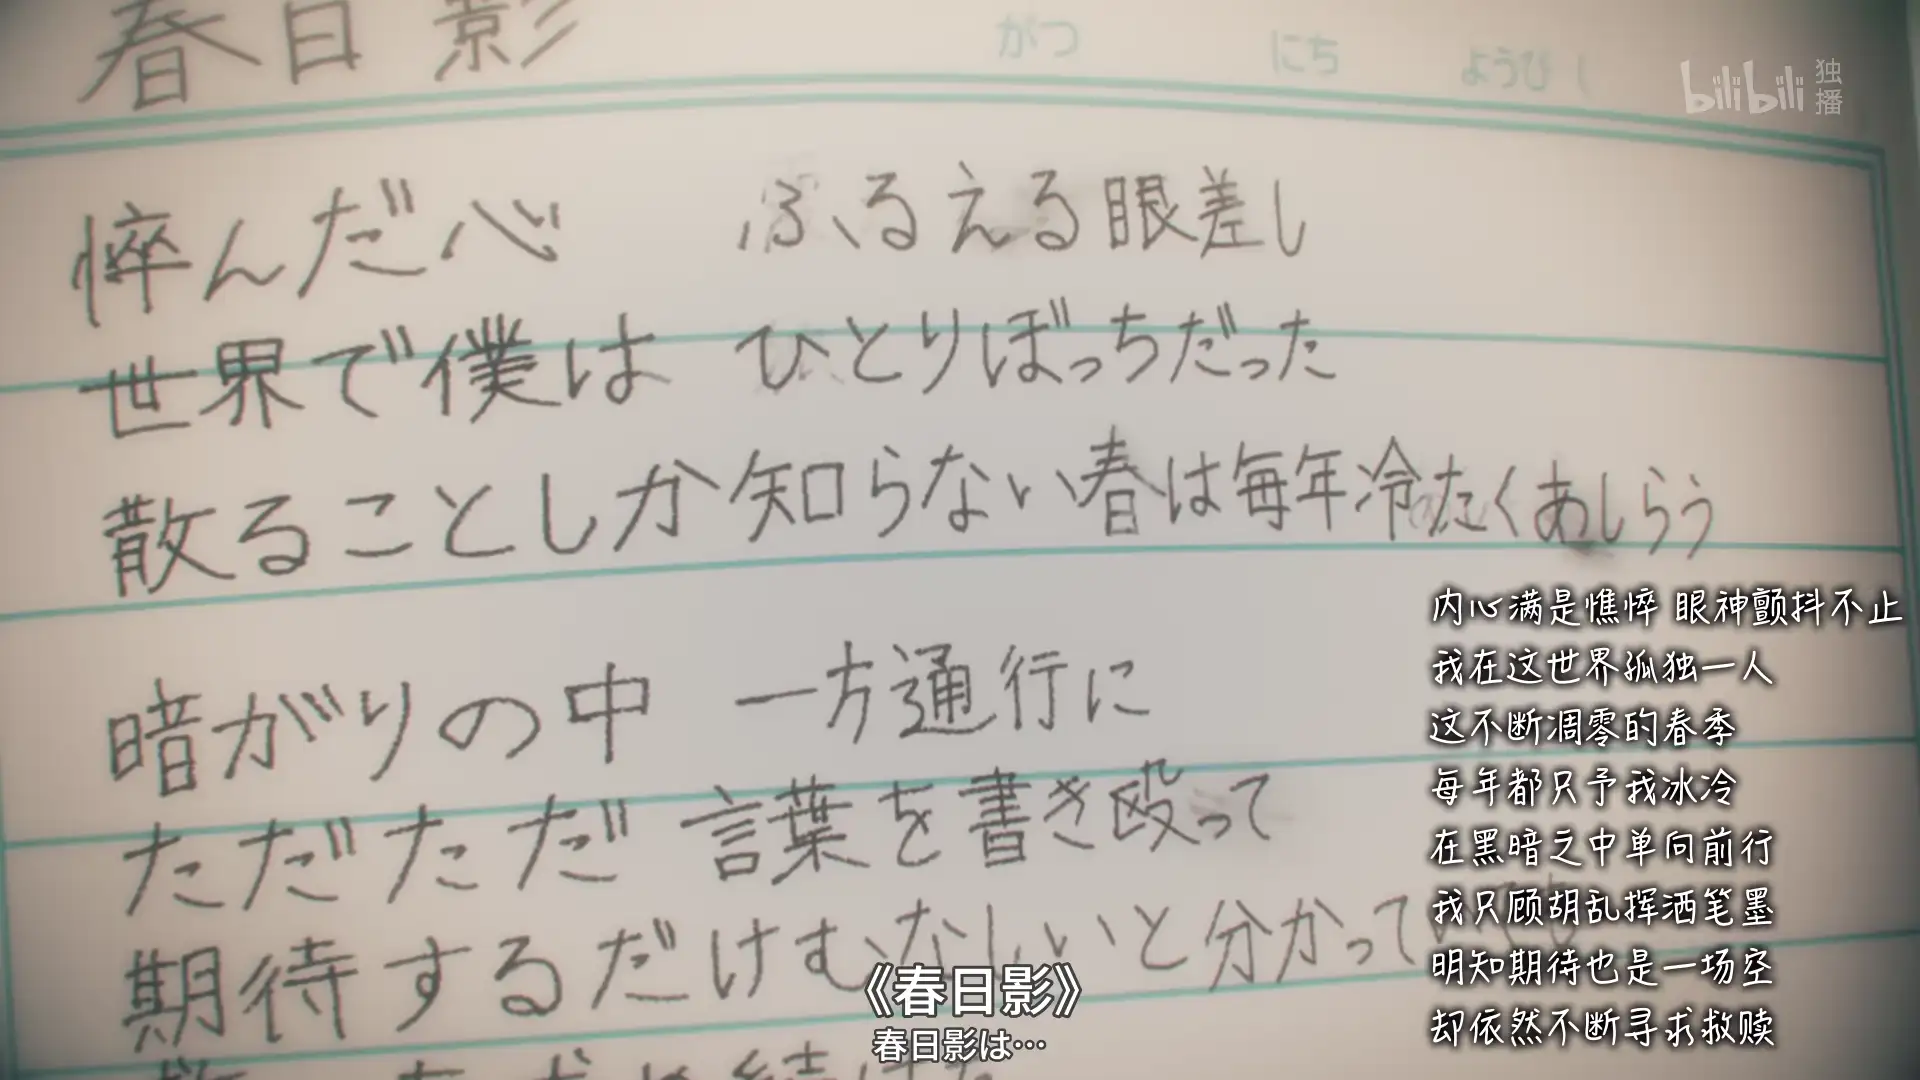 春日影
がつ にち ようび
bilibili 独播
悴んだ心 ふるえる眼差し
世界で僕は ひとりぼっちだった
散ることしか知らない春は毎年冷たくあしらう
暗がりの中 一方通行に
ただただ言葉を書き殴って
期待するだけむなしいと分かって
内心满是憔悴 眼神颤抖不止
我在这世界孤独一人
这不断凋零的春季
每年都只予我冰冷
在黑暗之中单向前行
我只顾胡乱挥洒笔墨
明知期待也是一场空
却依然不断寻求救赎
《春日影》
春日影は…